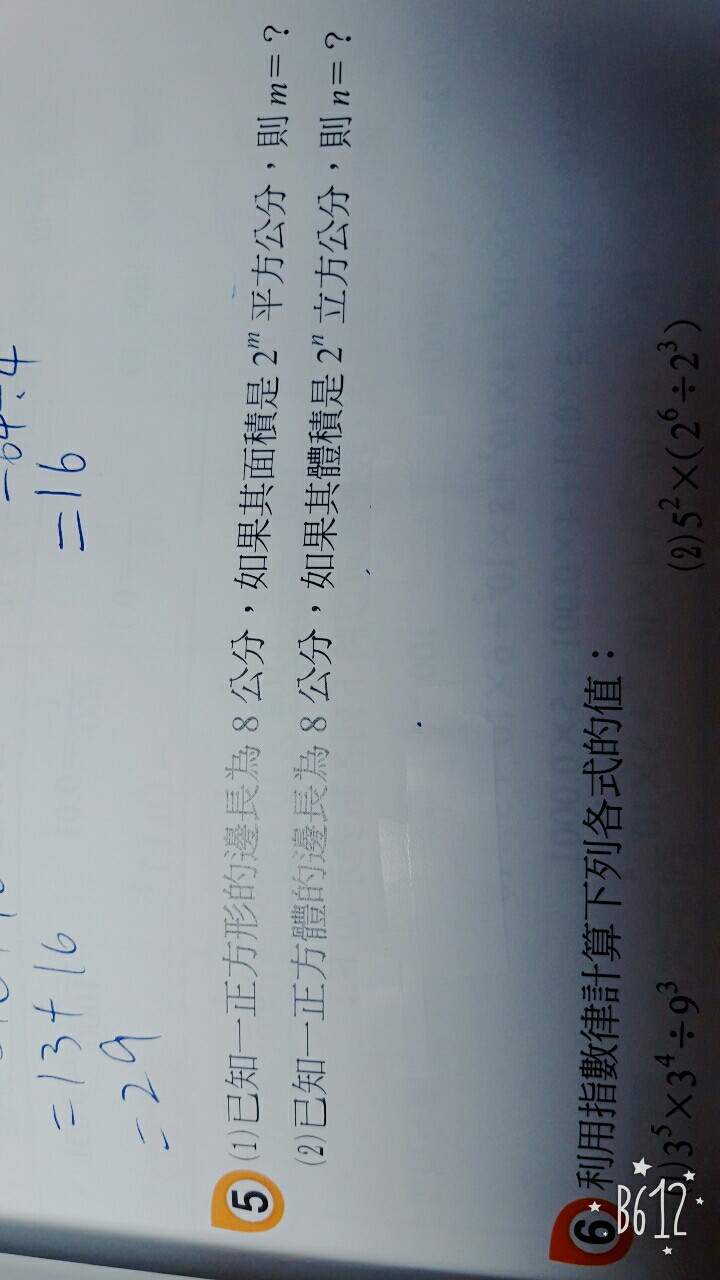 =16
=13+16
=29
5 (1)已知一正方形的邊長為 8 公分，如果其面積是 2^m 平方公分，則 m=？
(2)已知一正方體的邊長為 8 公分，如果其體積是 2^n 立方公分，則 n=？
6 利用指數律計算下列各式的值：
(1)3⁵×3⁴÷9³ (2)5²×(2⁶÷2³)
B612